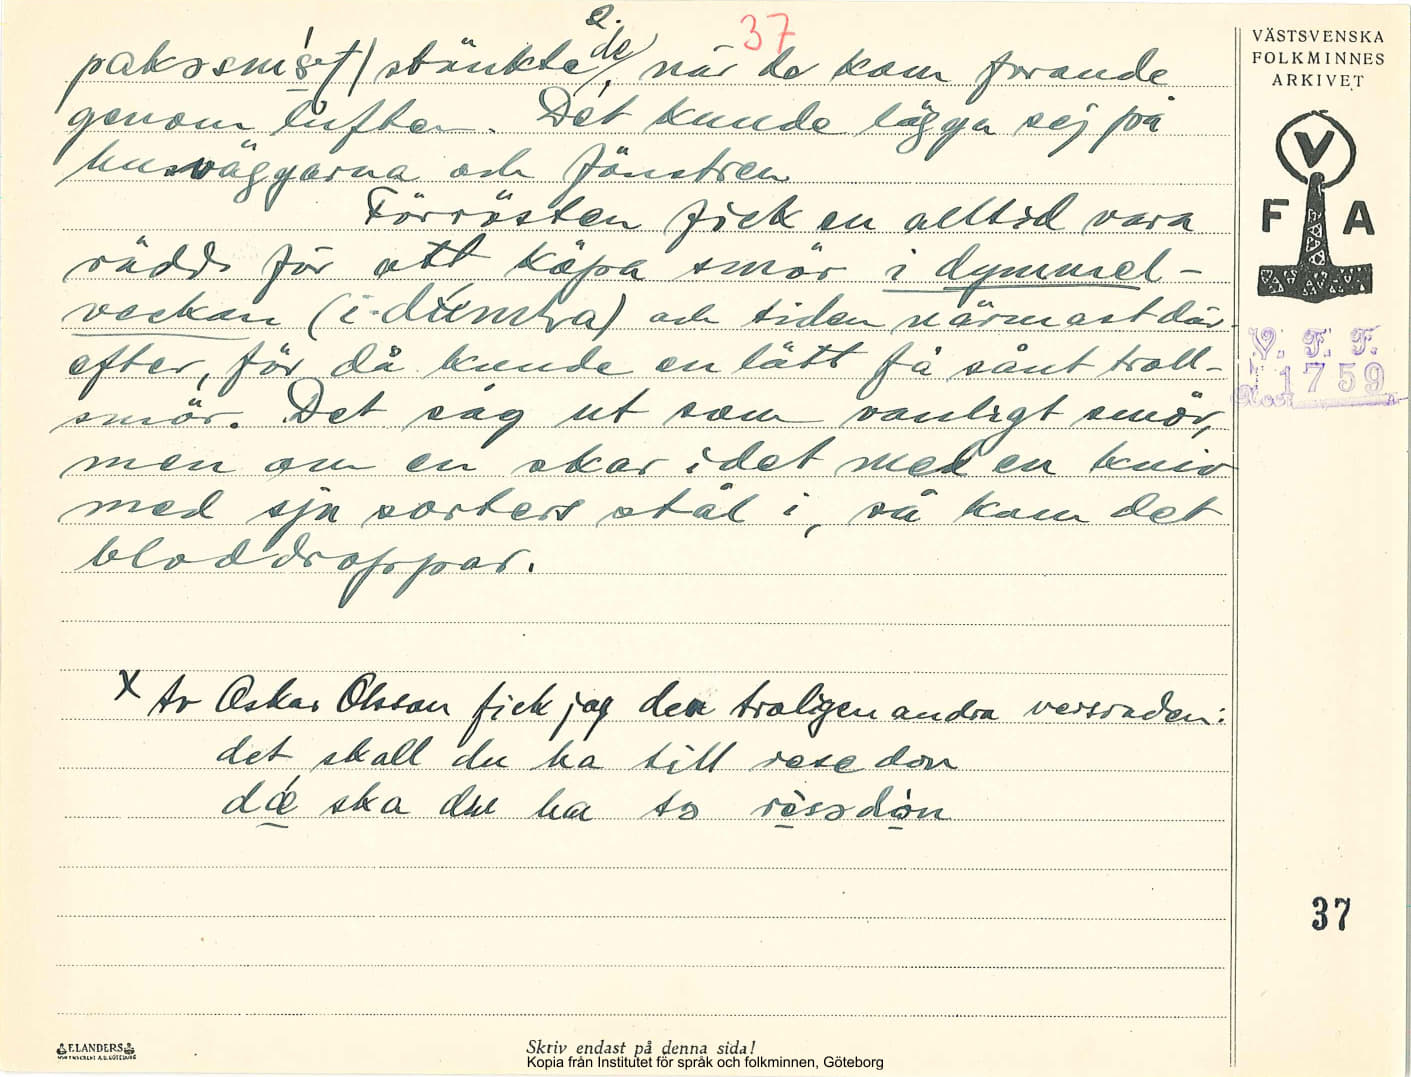 37
2.
stänkte de, när de kom farande
genom luften. Det kunde lägga sej på
husväggarna och fönstren
Förrästen fick en alltid vara
rädd för att köpa smör i dymmel-
veckan (i-dimbra) och tiden närmast där-
efter, för då kunde en lätt få sånt troll-
smör. Det såg ut som vanligt smör,
men om en skar i det med en kniv
med sju sorters stål i, så kom det
bloddroppar.
x Av Oskar Olsson fick jag den troligen andra versraden:
det skall du ha till rese don
dæ ska du ha tɔ resədon
VÄSTSVENSKA
FOLKMINNES
ARKIVET
V
F A
V. F. F.
1759
37
F. LANDERS
Skriv endast på denna sida!
Kopia från Institutet för språk och folkminnen, Göteborg